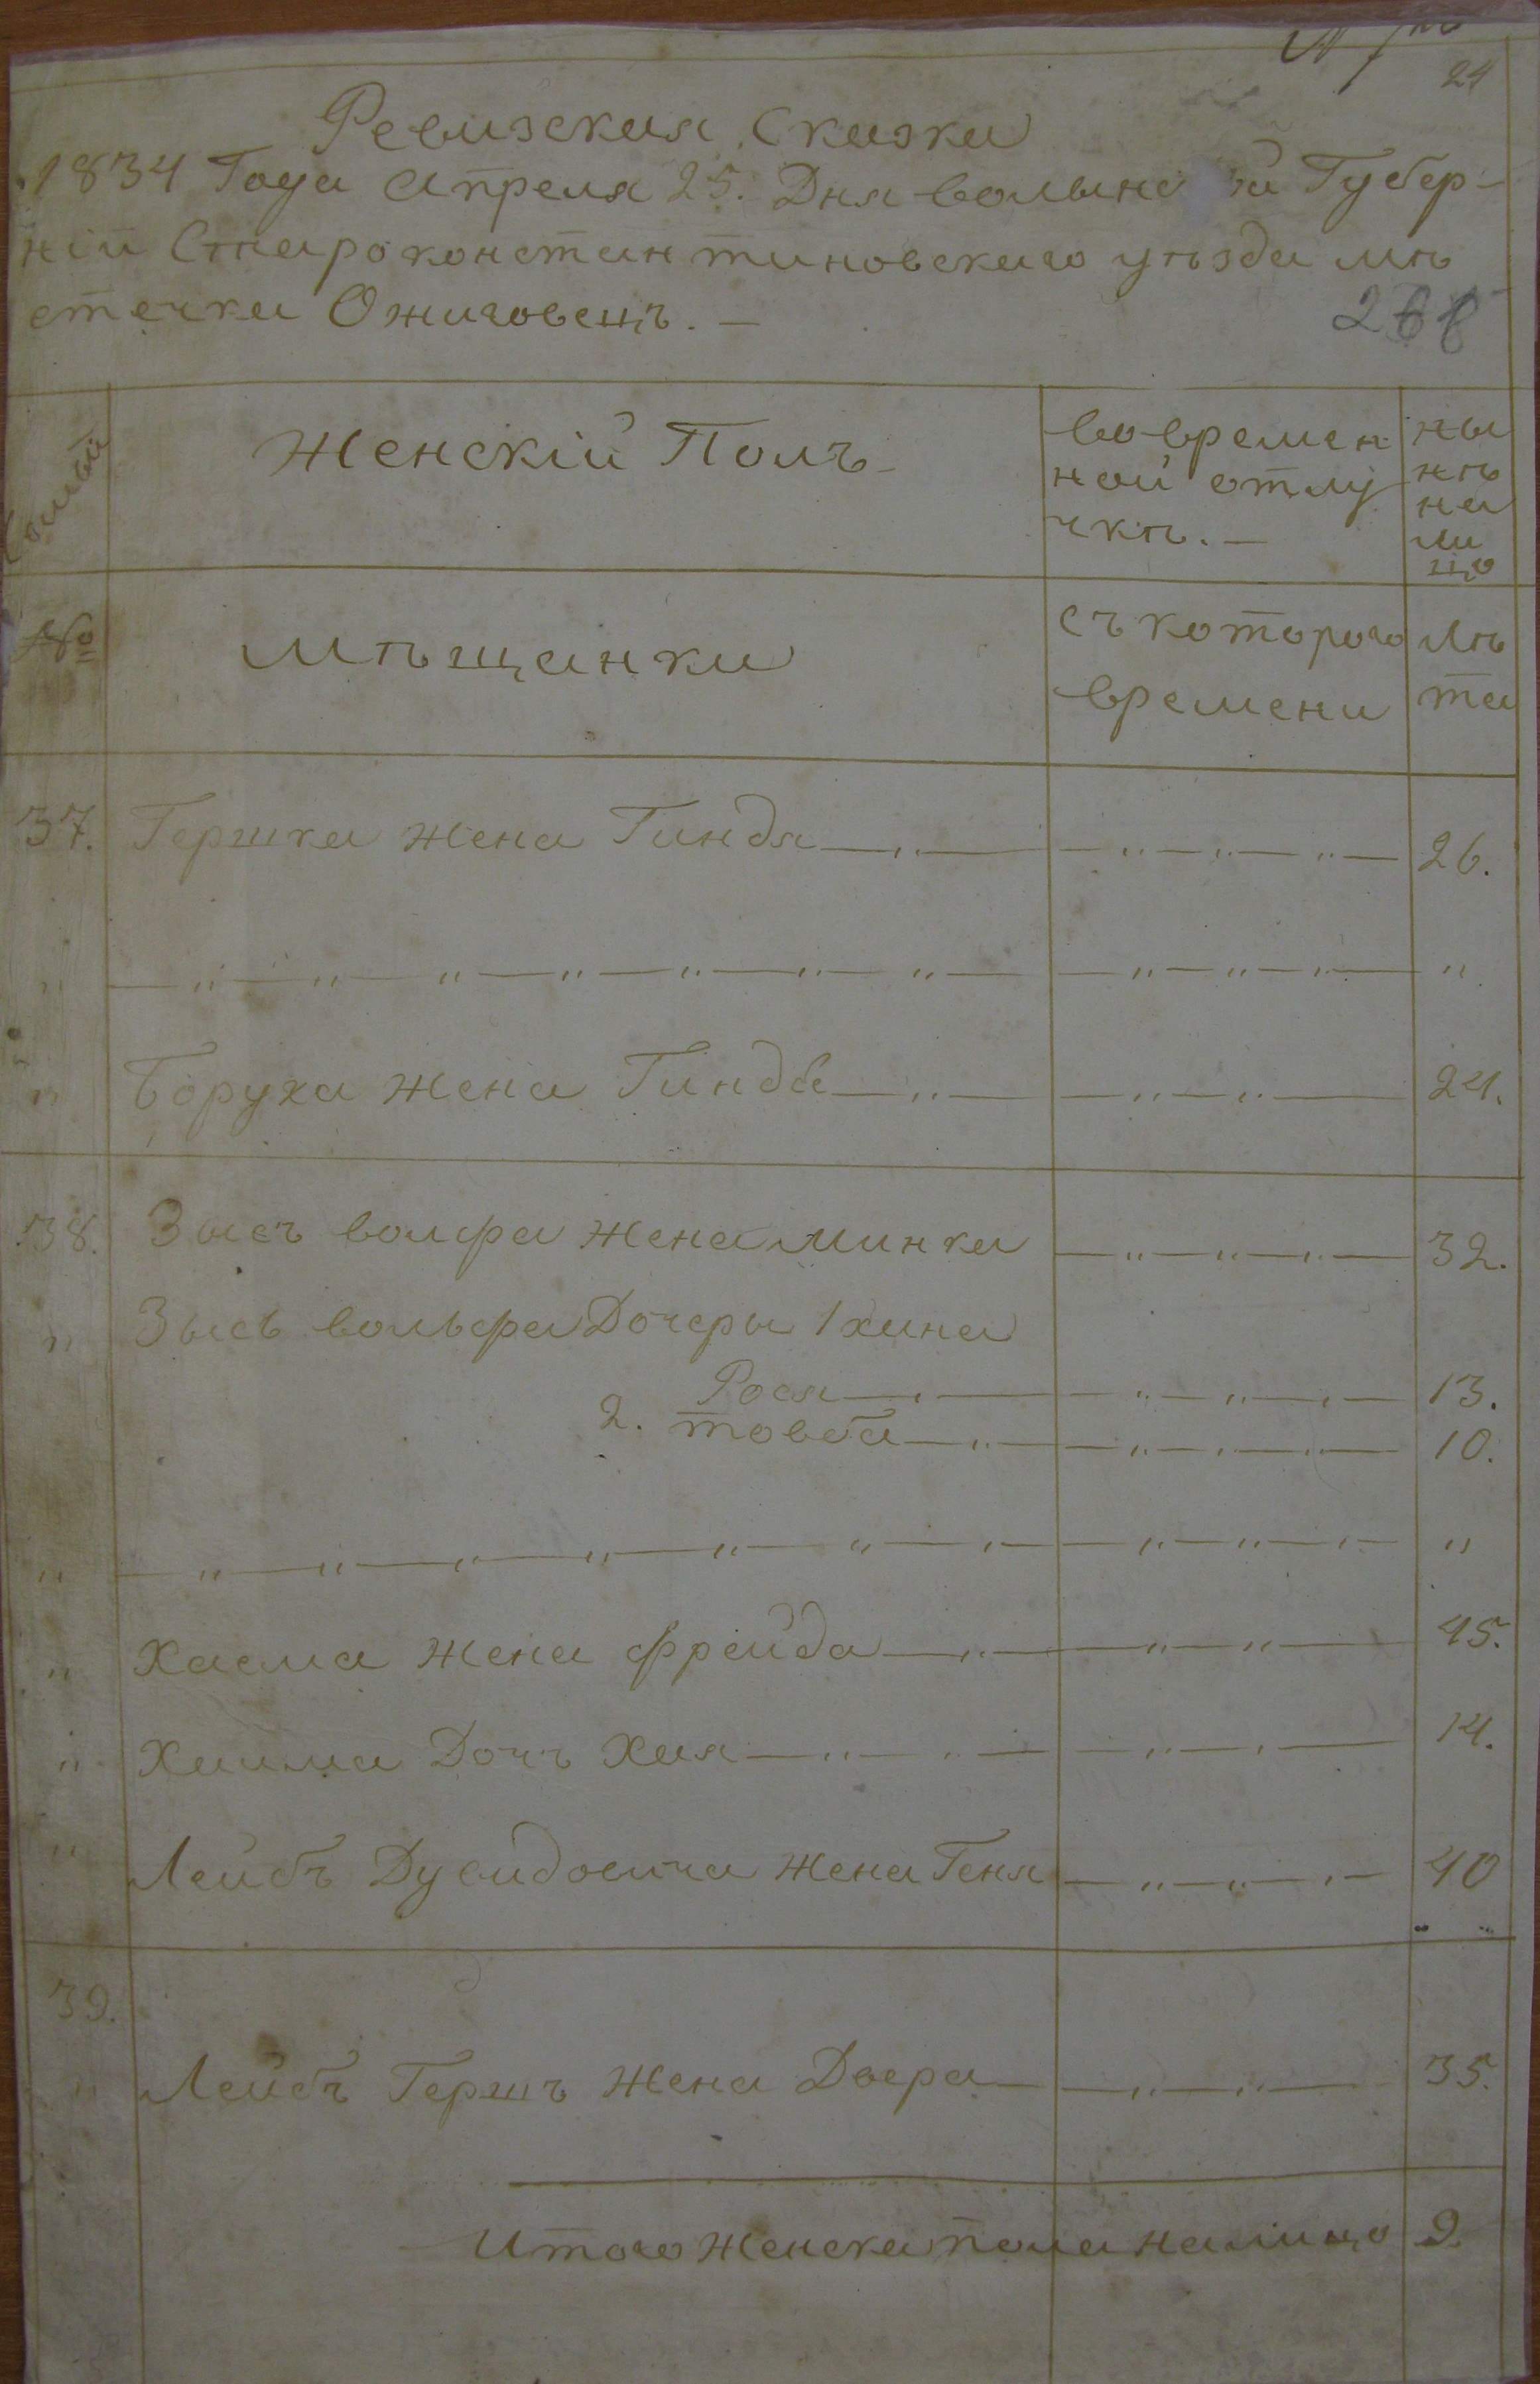 24
Ревизская Сказка
1834 Года Апреля 25. Дня волынской Губер-
ніи Староконстантиновскаго уѣзда мѣ
стечка Ожиговецъ. —
Женскій Полъ
во времен
ной отлу
чкѣ. —
ны
нѣ
на
ли
цо
№
мѣщанки
съ которого
времени
лѣ
та
37. Гершка жена Гиндя — „ — — „ — „ — „ — 26.
„ — „ — „ — „ — „ — „ — „ — „ — — „ — „ — „ — „
„ Боруха жена Гиндя — „ — — „ — „ — 24.
38. Зысъ волфа жена минка — „ — „ — „ — 32.
„ Зысь вольфа Дочеры 1 хина
Рося — „ — — „ — „ — „ — 13.
2. товба — „ — — „ — „ — „ — 10.
„ — „ — „ — „ — „ — „ — „ — „ — — „ — „ — „ — „
„ Хаема жена фрейда — „ — — „ — „ — 45.
„ Хаима Дочъ Хая — „ — „ — — „ — „ — 14.
„ Лейбъ Дувидовича жена Геня — „ — „ — „ — 40
39.
„ Лейбъ Гершъ жена Двера — — „ — „ — 35.
Итого женска пола налицо 9.